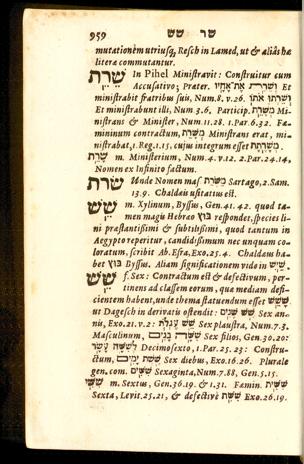 959 שר שש
mutationem utriusq, Resch in Lamed, ut & aliàs hæ
literæ commutantur.
שֵׁרֵת In Pihel Ministravit: Construitur cum
Accusativo; Præter. Et
ministrabit fratribus suis, Num.8. v.26.
Et ministrabunt illi, Num 3.6. Particip. Mi-
nistrans & Minister, Num.11.28. 1.Par.6.32. Fæ-
mininum contractum, Ministrans erat, mi-
nistrabat, 1.Reg.1.15, cujus integrum esset
m. Ministerium, Num.4. v.12. 2.Par.24.14,
Nomen ex Infinito factum.
שרת Unde Nomen mas: Sartago, 2.Sam.
13.9. Chaldæis usitatius est.
שש m. Xylinum, Byssus, Gen.41.42. quod ta-
men magis Hebræo בוץ respondet, species li-
ni præstantißimi & subtilißimi, quod tantum in
Aegypto reperitur, candidißimum nec unquam co-
loratum, scribit Ab. Esra, Exo.25.4. Chaldæum ha-
bet בוץ Byssus. Aliam significationem vide in שיש
שש f. Sex: Contractum est & defectivum, per-
tinens ad classem eorum, quæ mediam defi-
cientem habent, unde thema statuendum esset
ut Dagesch in derivatis ostendit: Sex an-
nis, Exo.21. v.2: Sex plaustra, Num.7.3.
Masculinum, Sex filios, Gen.30.20:
Decimosexto, 1.Par.25.23: Constru-
ctum, Sex diebus, Exo.16.26. Plurale
gen.com. Sexaginta, Num.7.88, Gen.5.15.
m. Sextus, Gen.36.19. & 1.31. Fæmin.
Sexta, Levit.25.21, & defectivè Exo.26.19.